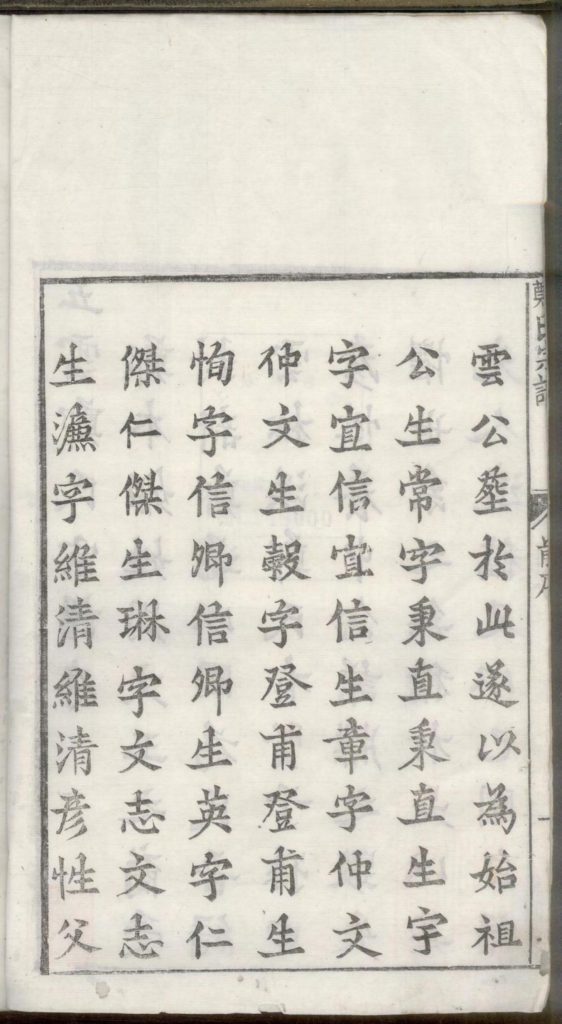 鄭氏宗譜
前序
一
雲公塟於此遂以為始祖
公生常字秉直秉直生宇
字宜信宜信生章字仲文
仲文生穀字登甫登甫生
恂字信卿信卿生英字仁
傑仁傑生琳字文志文志
生濂字維清維清彥性父